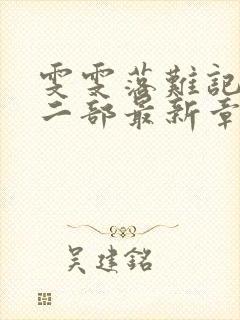 雯雯落難記
二部最新章
吳建銘